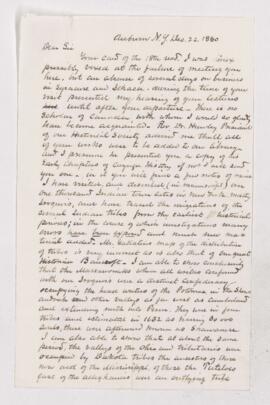 Auburn N.Y. Dec. 22. 1880
Dear Sir
Your card of the 18th recd. I was inex
pressibly vexed at the failure of meeting you
here, but an absence of several days on business
in Syracuse and Ithaca, during the time of your
visit prevented my hearing of your lectures
until after your departure. There is no
Scholar of Canada with whom I would so gladly
have become acquainted. Rev. Dr. Hawley President
of our Historical Society
of your works were to be added to our library
and I presume he presented you a copy of the
early chapters of Cayuga History if not I will send
you one
I have visited and described (in manuscript)
one thousand Indian town sites in New York mostly
Iroquois, and have traced the migrations of the
several Indian tribes from the earliest historical
period; in the course of which investigations many
errors have been exposed and much new ma
terial added. Mr. Gallatin's map of the distribution
of tribes is very incorrect as is also that of our great
Historian Bancroft. I am able to show conclusively
that the Massawomeks whom all writers confound
with our Iroquois were a distinct Confederacy
occupying the head waters of the Potomac in the Shenan
doah and other valleys as far west as Cumberland
and extending north into Penn. They were in four
tribes and estimated in 1632 as having 30,000
souls,
I am also able to show that at about the same
period, the valleys of the Ohio and tributaries were
occupied by Dakota tribes the ancestors of those
now west of the Mississippi, of these the Tuteloes
east of the Alleghanies was an outlying tribe